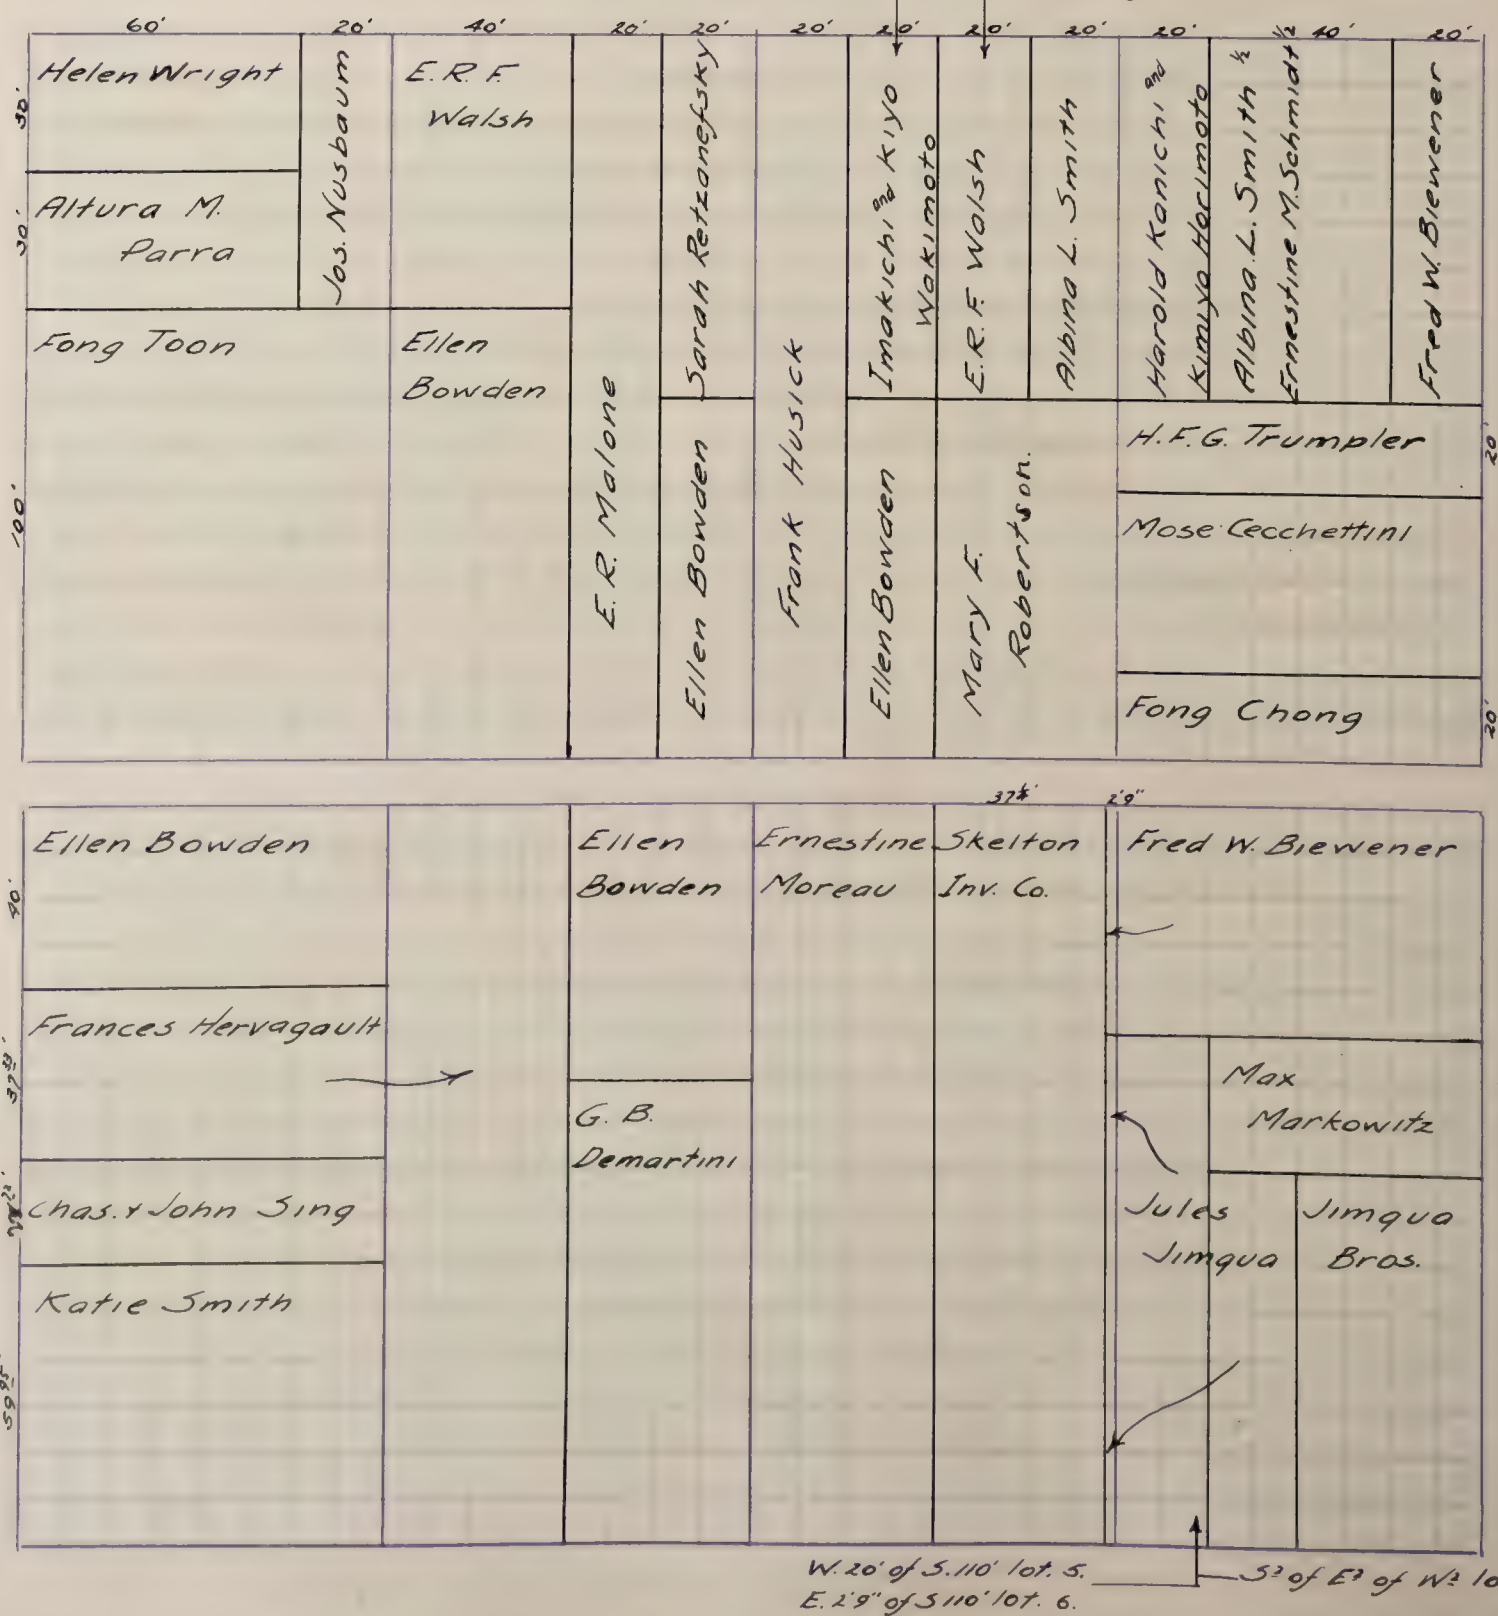 60' 20' 40' 20' 20' 20' 20' 20' 20' 20' 40' 20'
30'
Helen Wright
30'
Altura M.
Parra
Jos. Nusbaum
E. R. F.
Walsh
100'
Fong Toon
Ellen
Bowden
E. R. Malone
Sarah Retzanefsky
Ellen Bowden
Frank Husick
Imakichi and Kiyo
Wakimoto
Ellen Bowden
E. R. F. Walsh
Albina L. Smith
Mary F.
Robertson.
Harold Kanichi and
Kimiyo Horimoto
Albina L. Smith ½
Ernestine M. Schmidt ½
Fred W. Biewener
H. F. G. Trumpler
20'
Mose Cecchettini
Fong Chong
20'
2'9"
40'
Ellen Bowden
Frances Hervagault
Chas. & John Sing
59 95'
Katie Smith
Ellen
Bowden
G. B.
Demartini
Ernestine
Moreau
Skelton
Inv. Co.
Fred W. Biewener
Max
Markowitz
Jules
Jimqua
Jimqua
Bros.
W. 20' of S. 110' lot. 5.
E. 2'9" of S 110' lot. 6.
S½ of E½ of W½ lo